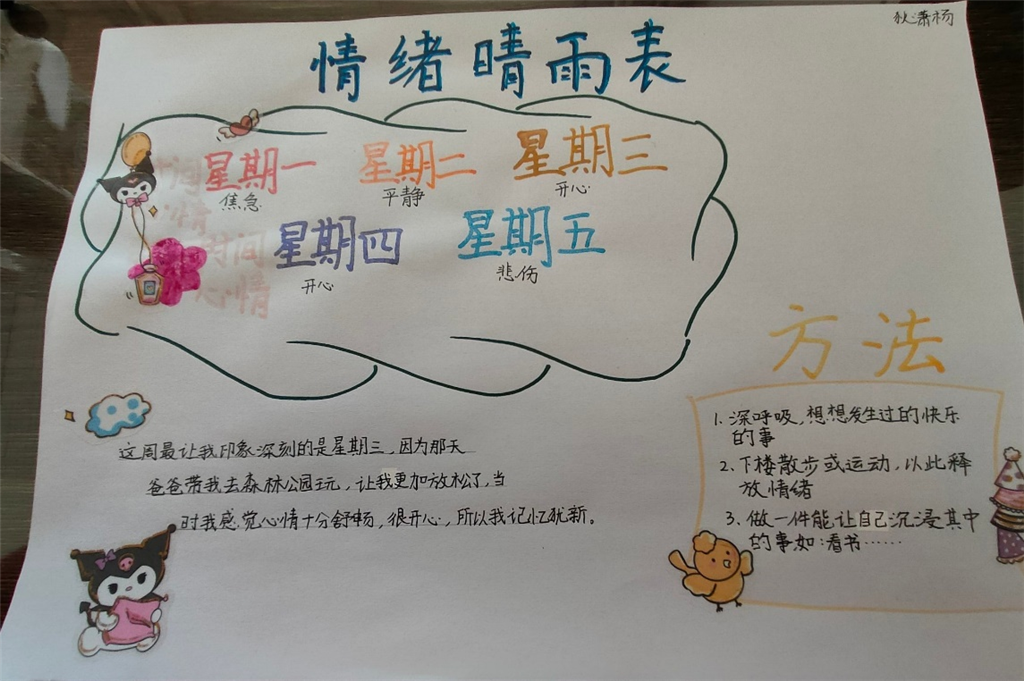 狄潇杨
情绪晴雨表
星期一 星期二 星期三
焦急 平静 开心
时间
心情
星期四 星期五
时间
开心 悲伤
心情
方法
1. 深呼吸，想想发生过的快乐
的事
2. 下楼散步或运动，以此释
放情绪
3. 做一件能让自己沉浸其中
的事如：看书……
这周最让我印象深刻的是星期三，因为那天
爸爸带我去森林公园玩，让我更加放松了，当
时我感觉心情十分舒畅，很开心，所以我记忆犹新。